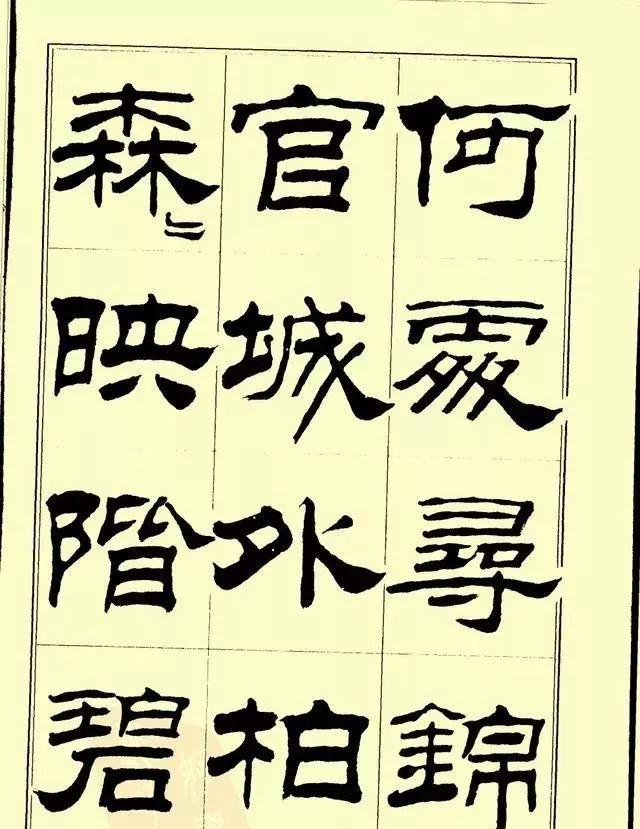 何處尋錦
官城外柏
森〻映階碧